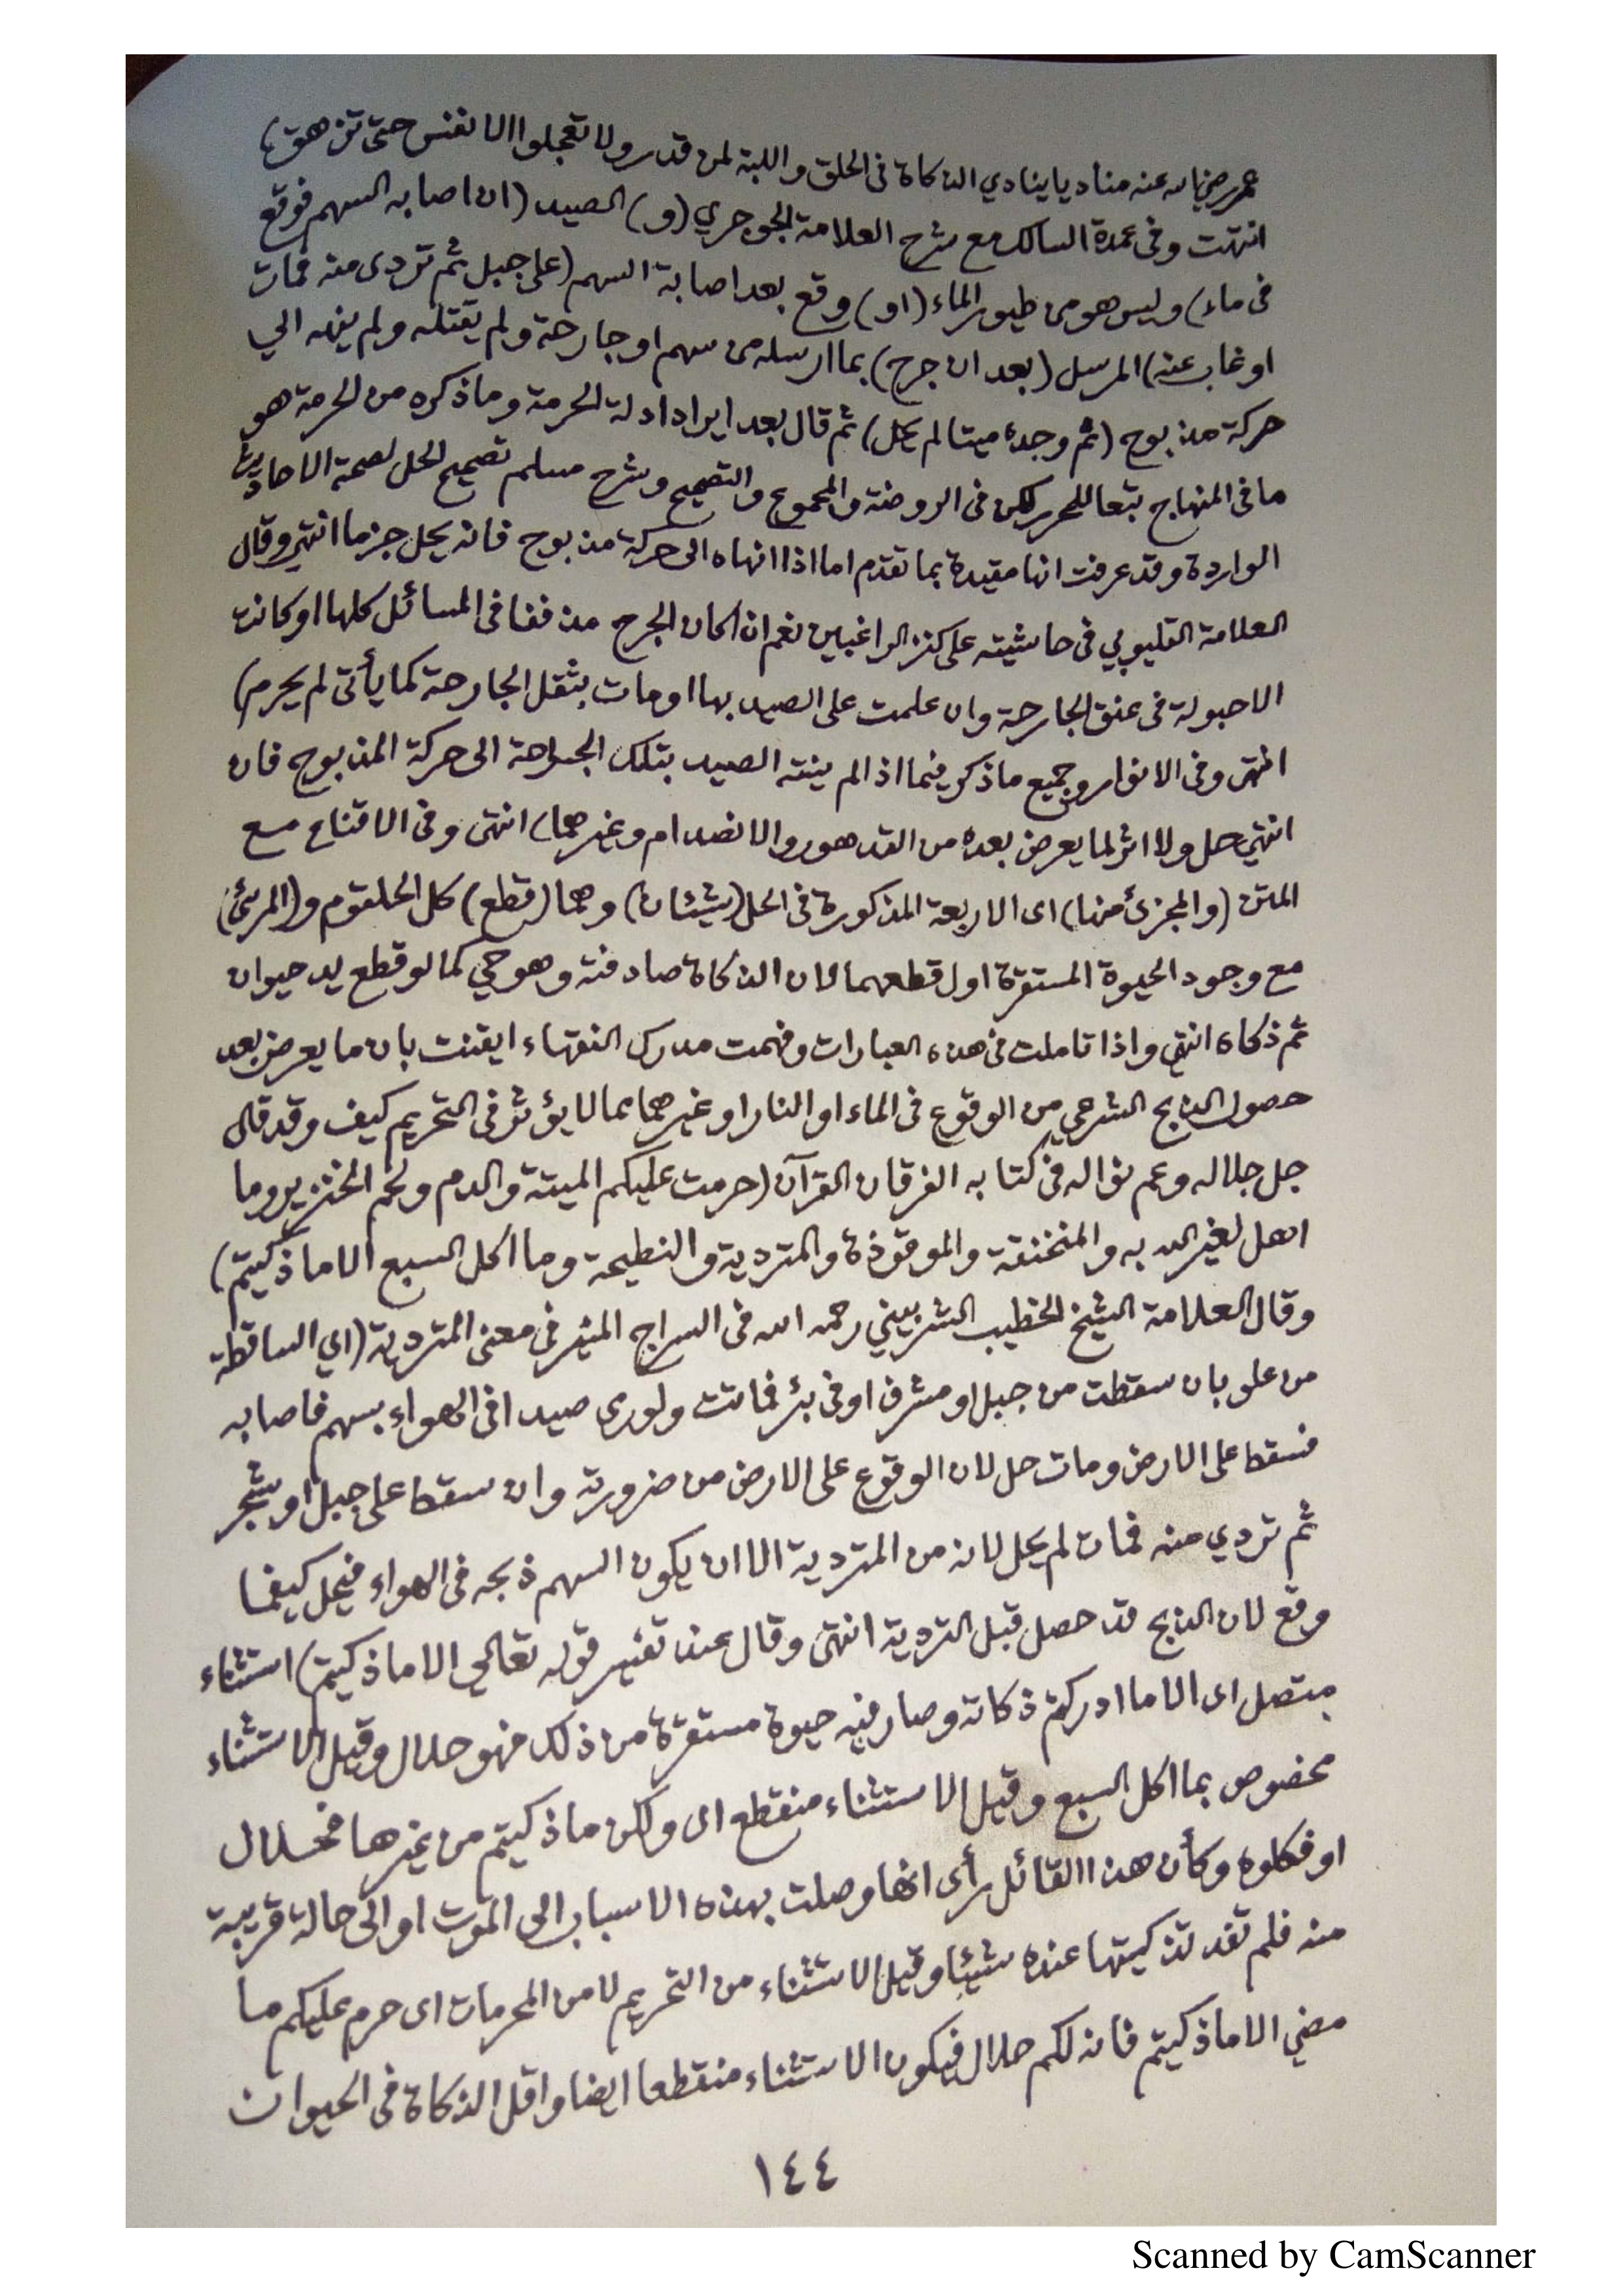 عمر رضي الله عنه مناديا ينادي الذكاة فى الحلق واللبة لمن قدر ولا تعجلوا الانفس حتى تزهق)
انتهت وفى عمدة السالك مع شرح العلامة الجوجري (و) الصيد (ان اصابه السهم فوقع
فى ماء) وليس هو من طيور الماء (او) وقع بعد اصابة السهم (على جبل ثم تردى منه فمات
او غاب عنه) المرسل (بعد ان جرح) بما ارسله من سهم او جارحة ولم يقتله ولم ينهه الي
حركة مذبوح (ثم وجده ميتا لم يحل) ثم قال بعد ايراد ادلة الحرمة وما ذكره من الحرمة هو
ما فى المنهاج تبعا للمحرر لكن فى الروضة والمجموع والتصحيح وشرح مسلم تصحيح الحل لصحة الاحاديث
الواردة وقد عرفت انها مقيدة بما تقدم اما اذا انهاه الى حركة مذبوح فانه يحل جزما انتهى وقال
العلامة القليوبي فى حاشيته على كنز الراغبين نعم ان كان الجرح مذففا فى المسائل كلها او كانت
الاحبولة فى عنق الجارحة وان علمت على الصيد بها او مات بثقل الجارحة كما يأتى لم يحرم)
انتهى وفى الانوار وجميع ما ذكر فيما اذا لم ينته الصيد بتلك الجراحة الى حركة المذبوح فان
انتهي حل ولا اثر لما يعرض بعده من التدهور والانصدام وغيرهما) انتهى وفى الاقناع مع
المتن (والمجزئ منها) اى الاربعة المذكورة فى الحل (شيئان) وهما (قطع) كل الحلقوم و(المرئ)
مع وجود الحيوة المستقرة اول قطعهما لان الذكاة صادفته وهو حي كما لو قطع يد حيوان
ثم ذكاه انتهى واذا تاملت فى هذه العبارات وفهمت مدرك الفقهاء ايقنت بان ما يعرض بعد
حصول الذبح الشرعي من الوقوع فى الماء او النار او غيرهما مما لا يؤثر فى التحريم كيف وقد قال
جل جلاله وعم نواله فى كتابه الفرقان القرآن (حرمت عليكم الميتة والدم ولحم الخنزير وما
اهل لغير الله به والمنخنقة والموقوذة والمتردية والنطيحة وما اكل السبع الا ما ذكيتم)
وقال العلامة الشيخ الخطيب الشربيني رحمه الله فى السراج المنير فى معنى المتردية (اي الساقطة
من علو بان سقطت من جبل او مشرف او فى بئر فماتت ولو رمى صيدا فى الهواء بسهم فاصابه
فسقط على الارض ومات حل لان الوقوع على الارض من ضرورته وان سقط على جبل او شجر
ثم تردي منه فمات لم يحل لانه من المتردية الا ان يكون السهم ذبحه فى الهواء فيحل كيفما
وقع لان الذبح قد حصل قبل التردية انتهى وقال عند تفسير قوله تعالي الا ما ذكيتم) استثناء
متصل اى الا ما ادركتم ذكاته وصار فيه حيوة مستقرة من ذلك فهو حلال وقيل الاستثناء
مخصوص بما اكل السبع وقيل الاستثناء منقطع اى ولكن ما ذكيتم من غيرها فحلال
او فكلوه وكأن هذا القائل رأى انها وصلت بهذه الاسباب الى الموت او الى حالة قريبة
منه فلم تفد تذكيتها عنده شيئا وقيل الاستثناء من التحريم لا من المحرمات اى حرم عليكم ما
مضي الا ما ذكيتم فانه لكم حلال فيكون الاستثناء منقطعا ايضا واقل الذكاة فى الحيوان
١٤٤
Scanned by CamScanner